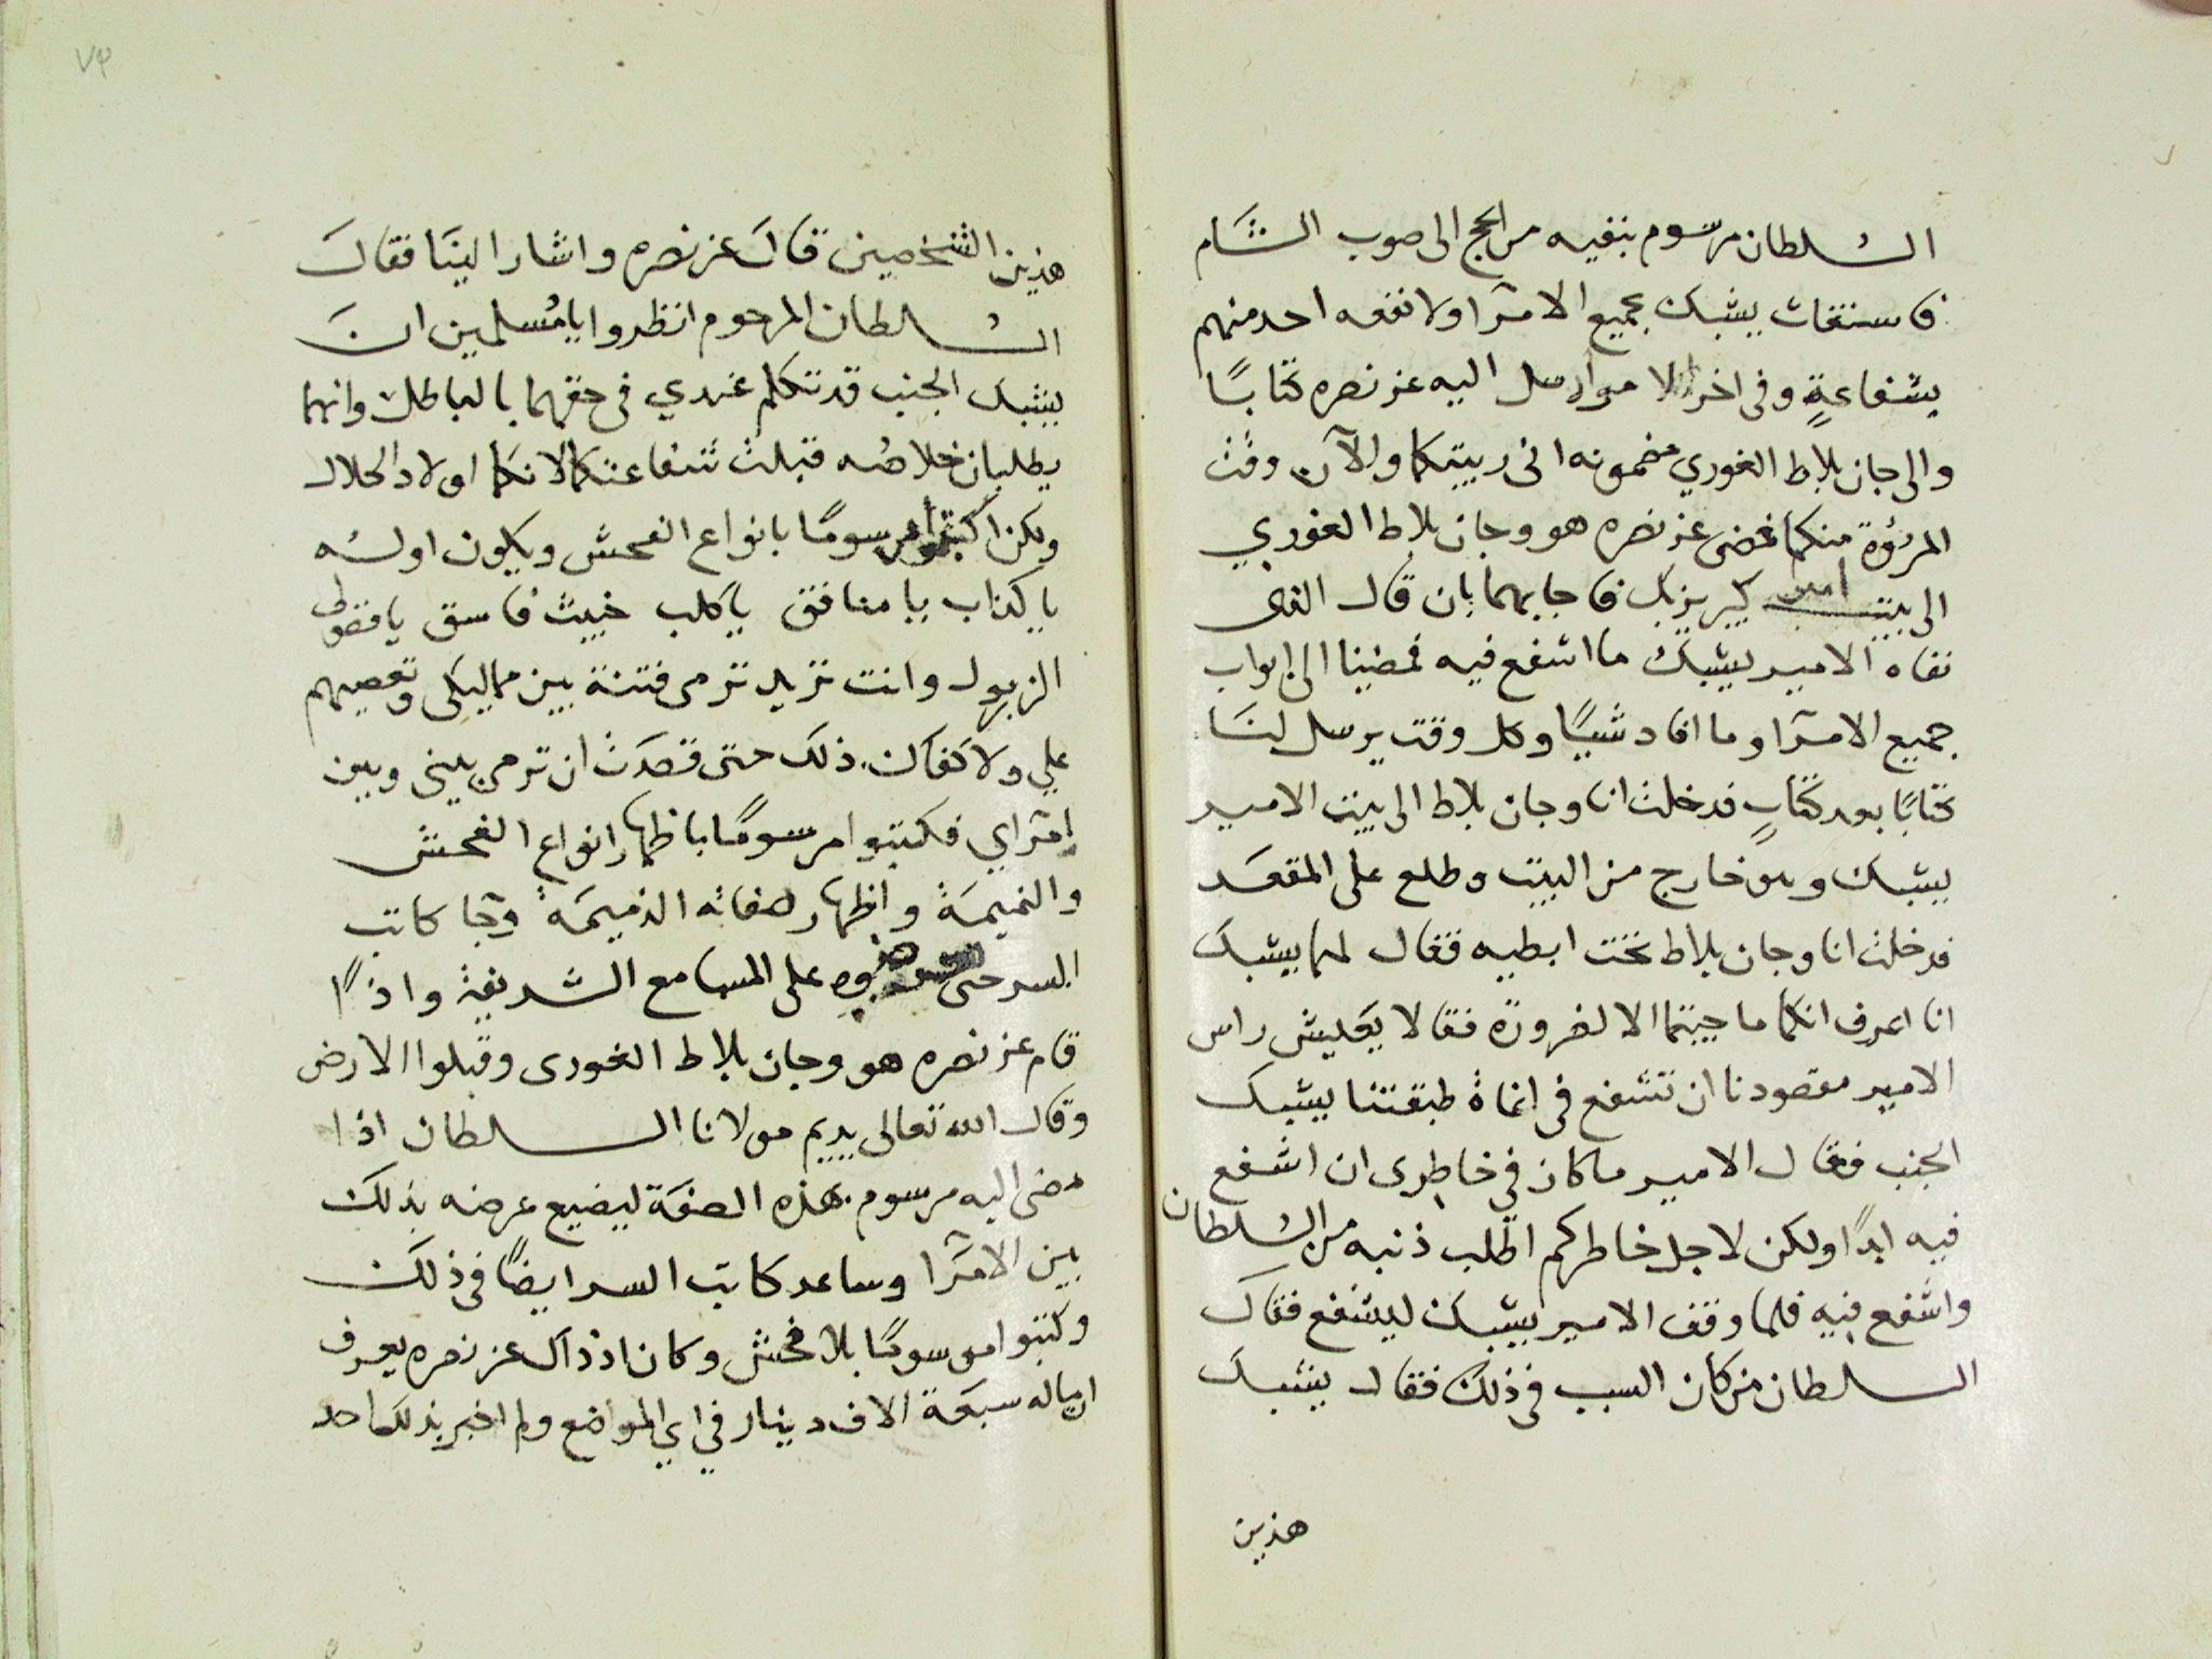 السلطان مرسوم بنفيه من الحج الى صوب الشام
فاستغاث يشبك بجميع الامرا ولا نفعه احد منهم
بشفاعةٍ وفى اخر الامر ارسل اليه عز نصره كتابًا
والى جان بلاط الغوري مضمونه انى ربيتكما والآن وقت
المرؤة منكما فمضى عز نصره هو وجان بلاط الغوري
الى بيت امير كبير يزبك فاجابهما بان قال الذى
نفاه الامير يشبك ما اشفع فيه فمضينا الى ابواب
جميع الامرا وما افاد شيًا وكل وقت يرسل لنا
كتابًا بعد كتابٍ فدخلت انا وجان بلاط الى بيت الامير
يشبك وهو خارج من البيت وطلع على المقعد
فدخلت انا وجان بلاط تحت ابطيه فقال لهما يشبك
انا اعرف انكما ما جيتما الا لضرورة فقالا يعيش راس
الامير مقصودنا ان تشفع فى اغاة طبقتنا يشبك
الجنب فقال الامير ما كان في خاطرى ان اشفع
فيه ابدًا ولكن لاجل خاطركم اطلب ذنبه من السلطان
واشفع فيه فلما وقف الامير يشبك ليشفع فقال
السلطان من كان السبب فى ذلك فقال يشبك
هذين
٧٣
هذين الشخصين قال عز نصره واشار الينا فقال
السلطان المرحوم انظروا يا مسلمين ان
يشبك الجنب قد تكلم عندي فى حقهما بالباطل وانهما
يطلبان خلاصه قبلت شفاعتكما لانكما اولاد الحلال
ولكن اكتبوا مرسومًا بانواع الفحش ويكون اوله
يا كذاب يا منافق يا كلب خبيث فاسق يا فضولى
الزبول وانت تريد ترمى فتنة بين مماليكى وتعصيهم
علي ولا كفاك ذلك حتى قصدت ان ترمى بينى وبين
امراي فكتبوا مرسومًا باظهار انواع الفحش
والنميمة واظهار صفاته الذميمة وجا كاتب
السر حتى على المسامع الشريفة واذًا
قام عز نصره هو وجان بلاط الغورى وقبلوا الارض
وقال الله تعالى يديم مولانا السلطان اذا
مضى اليه مرسوم بهذه الصفة ليضيع عرضه بذلك
بين الامرا وساعد كاتب السر ايضًا فى ذلك
وكتبوا مرسومًا بلا فحش وكان اذ ذاك عز نصره يعرف
ان ماله سبعة الاف دينار في اي المواضع ولم اخبر بذلك احد